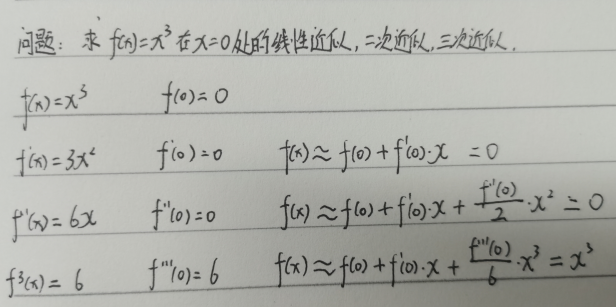 问题：求 f(x)=x³ 在x=0处的线性近似，二次近似，三次近似.
f(x)=x³ f(0)=0
f'(x)=3x² f'(0)=0 f(x)≈f(0)+f'(0)·x =0
f''(x)=6x f''(0)=0 f(x)≈f(0)+f'(0)·x+f''(0)/2·x²=0
f³(x)=6 f'''(0)=6 f(x)≈f(0)+f'(0)·x+f'''(0)/6·x³=x³